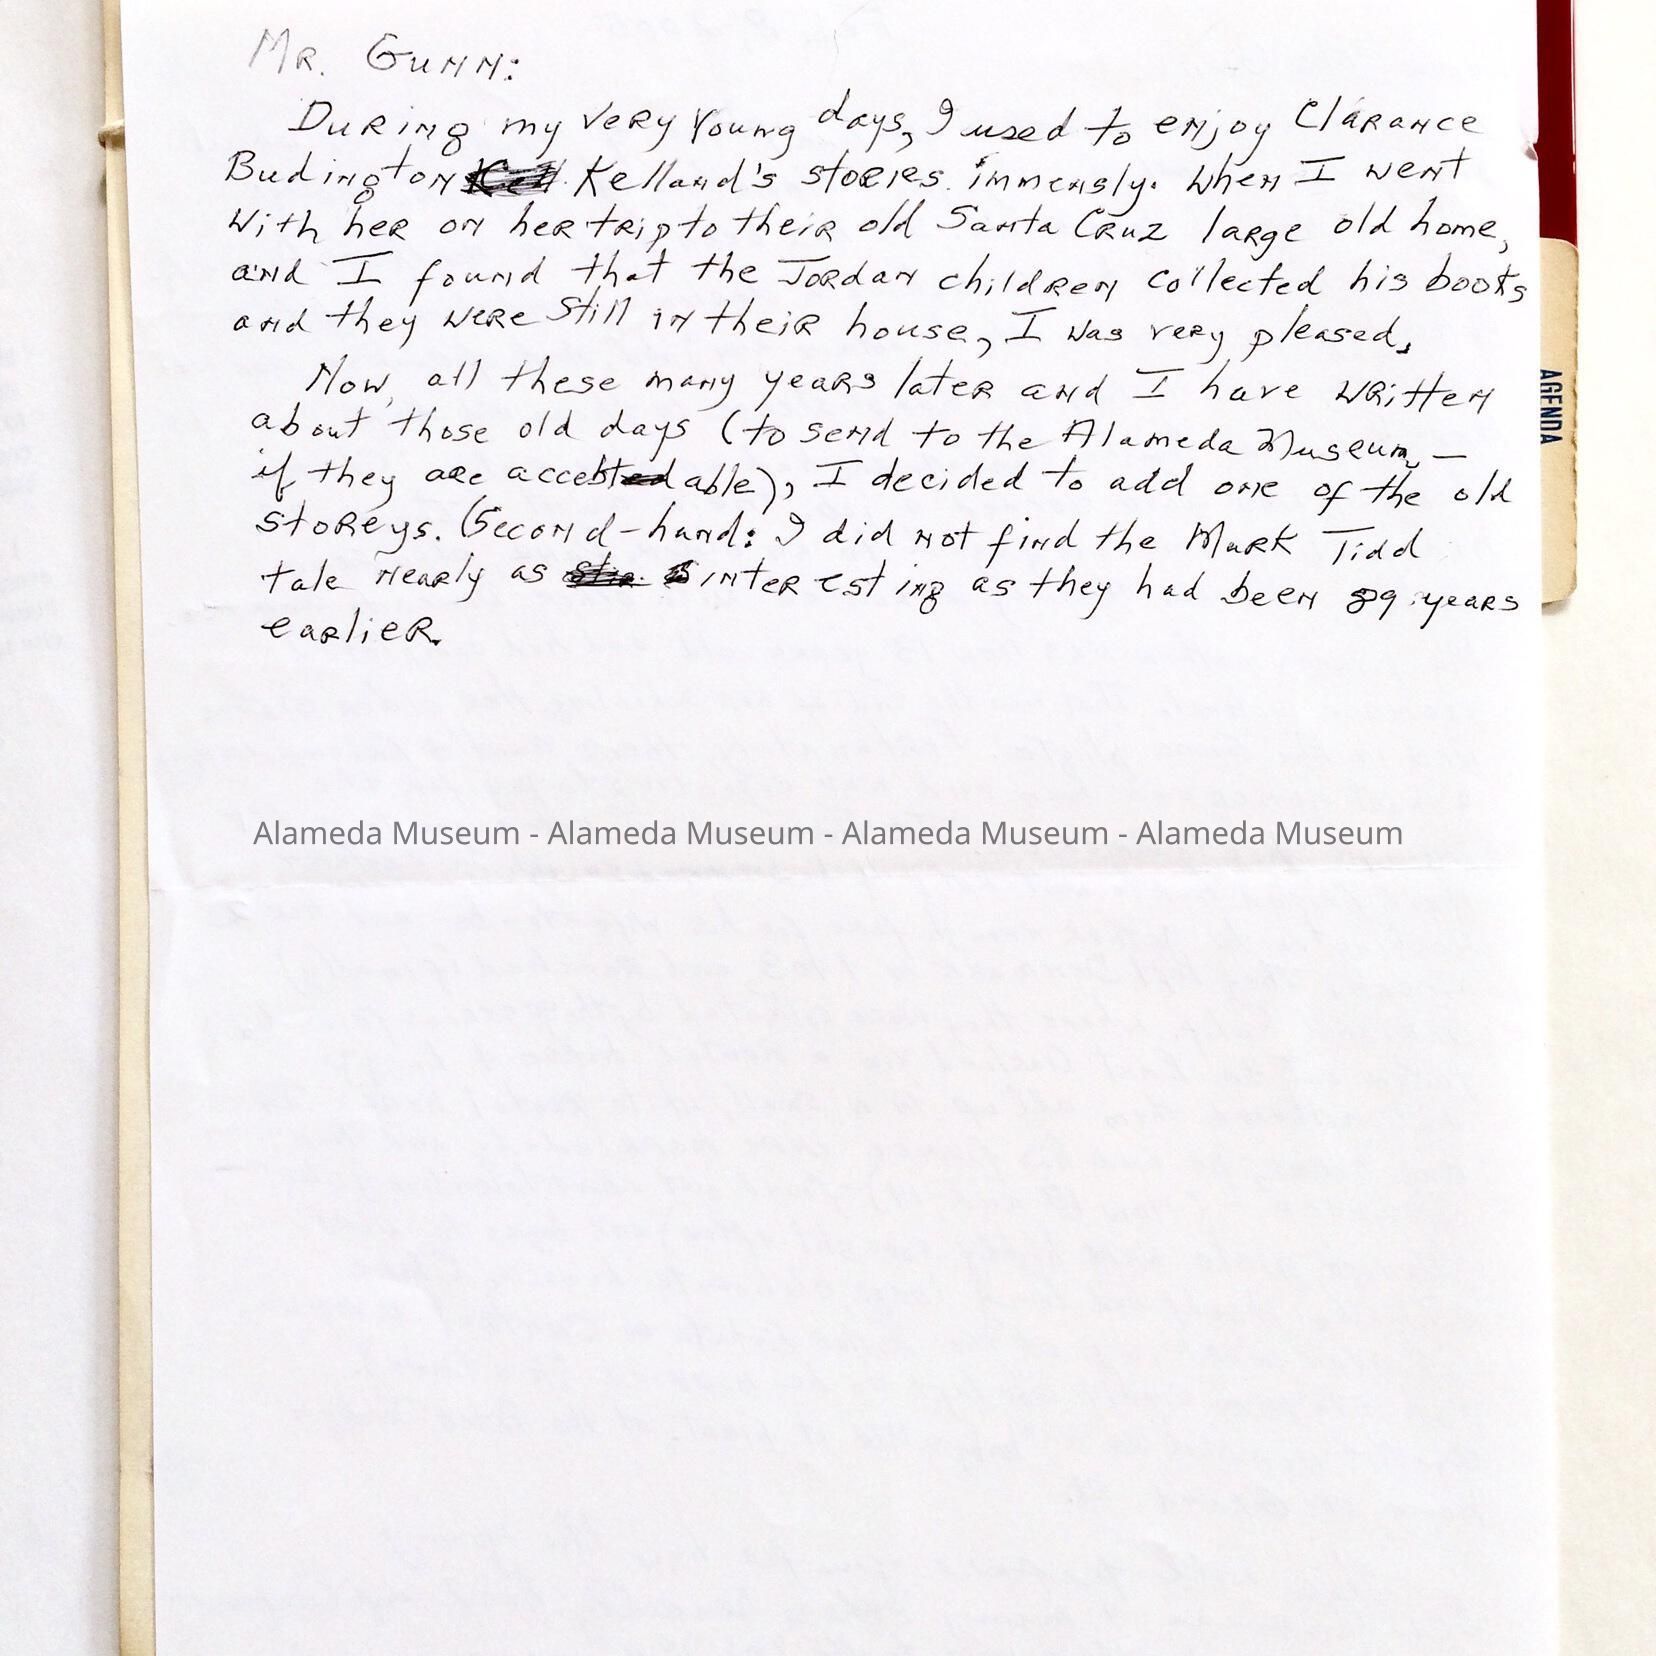 Mr. Gunn:
During my very young days, I used to enjoy Clarance
Budington Kelland's stories immensly. When I went
with her on her trip to their old Santa Cruz large old home,
and I found that the Jordan children collected his books
and they were still in their house, I was very pleased.
Now, all these many years later and I have written
about those old days (to send to the Alameda Museum, —
if they are acceptable), I decided to add one of the old
storeys. (Second-hand: I did not find the Mark Tidd
tale nearly as interesting as they had been 89 years
earlier.
AGENDA
Alameda Museum - Alameda Museum - Alameda Museum - Alameda Museum